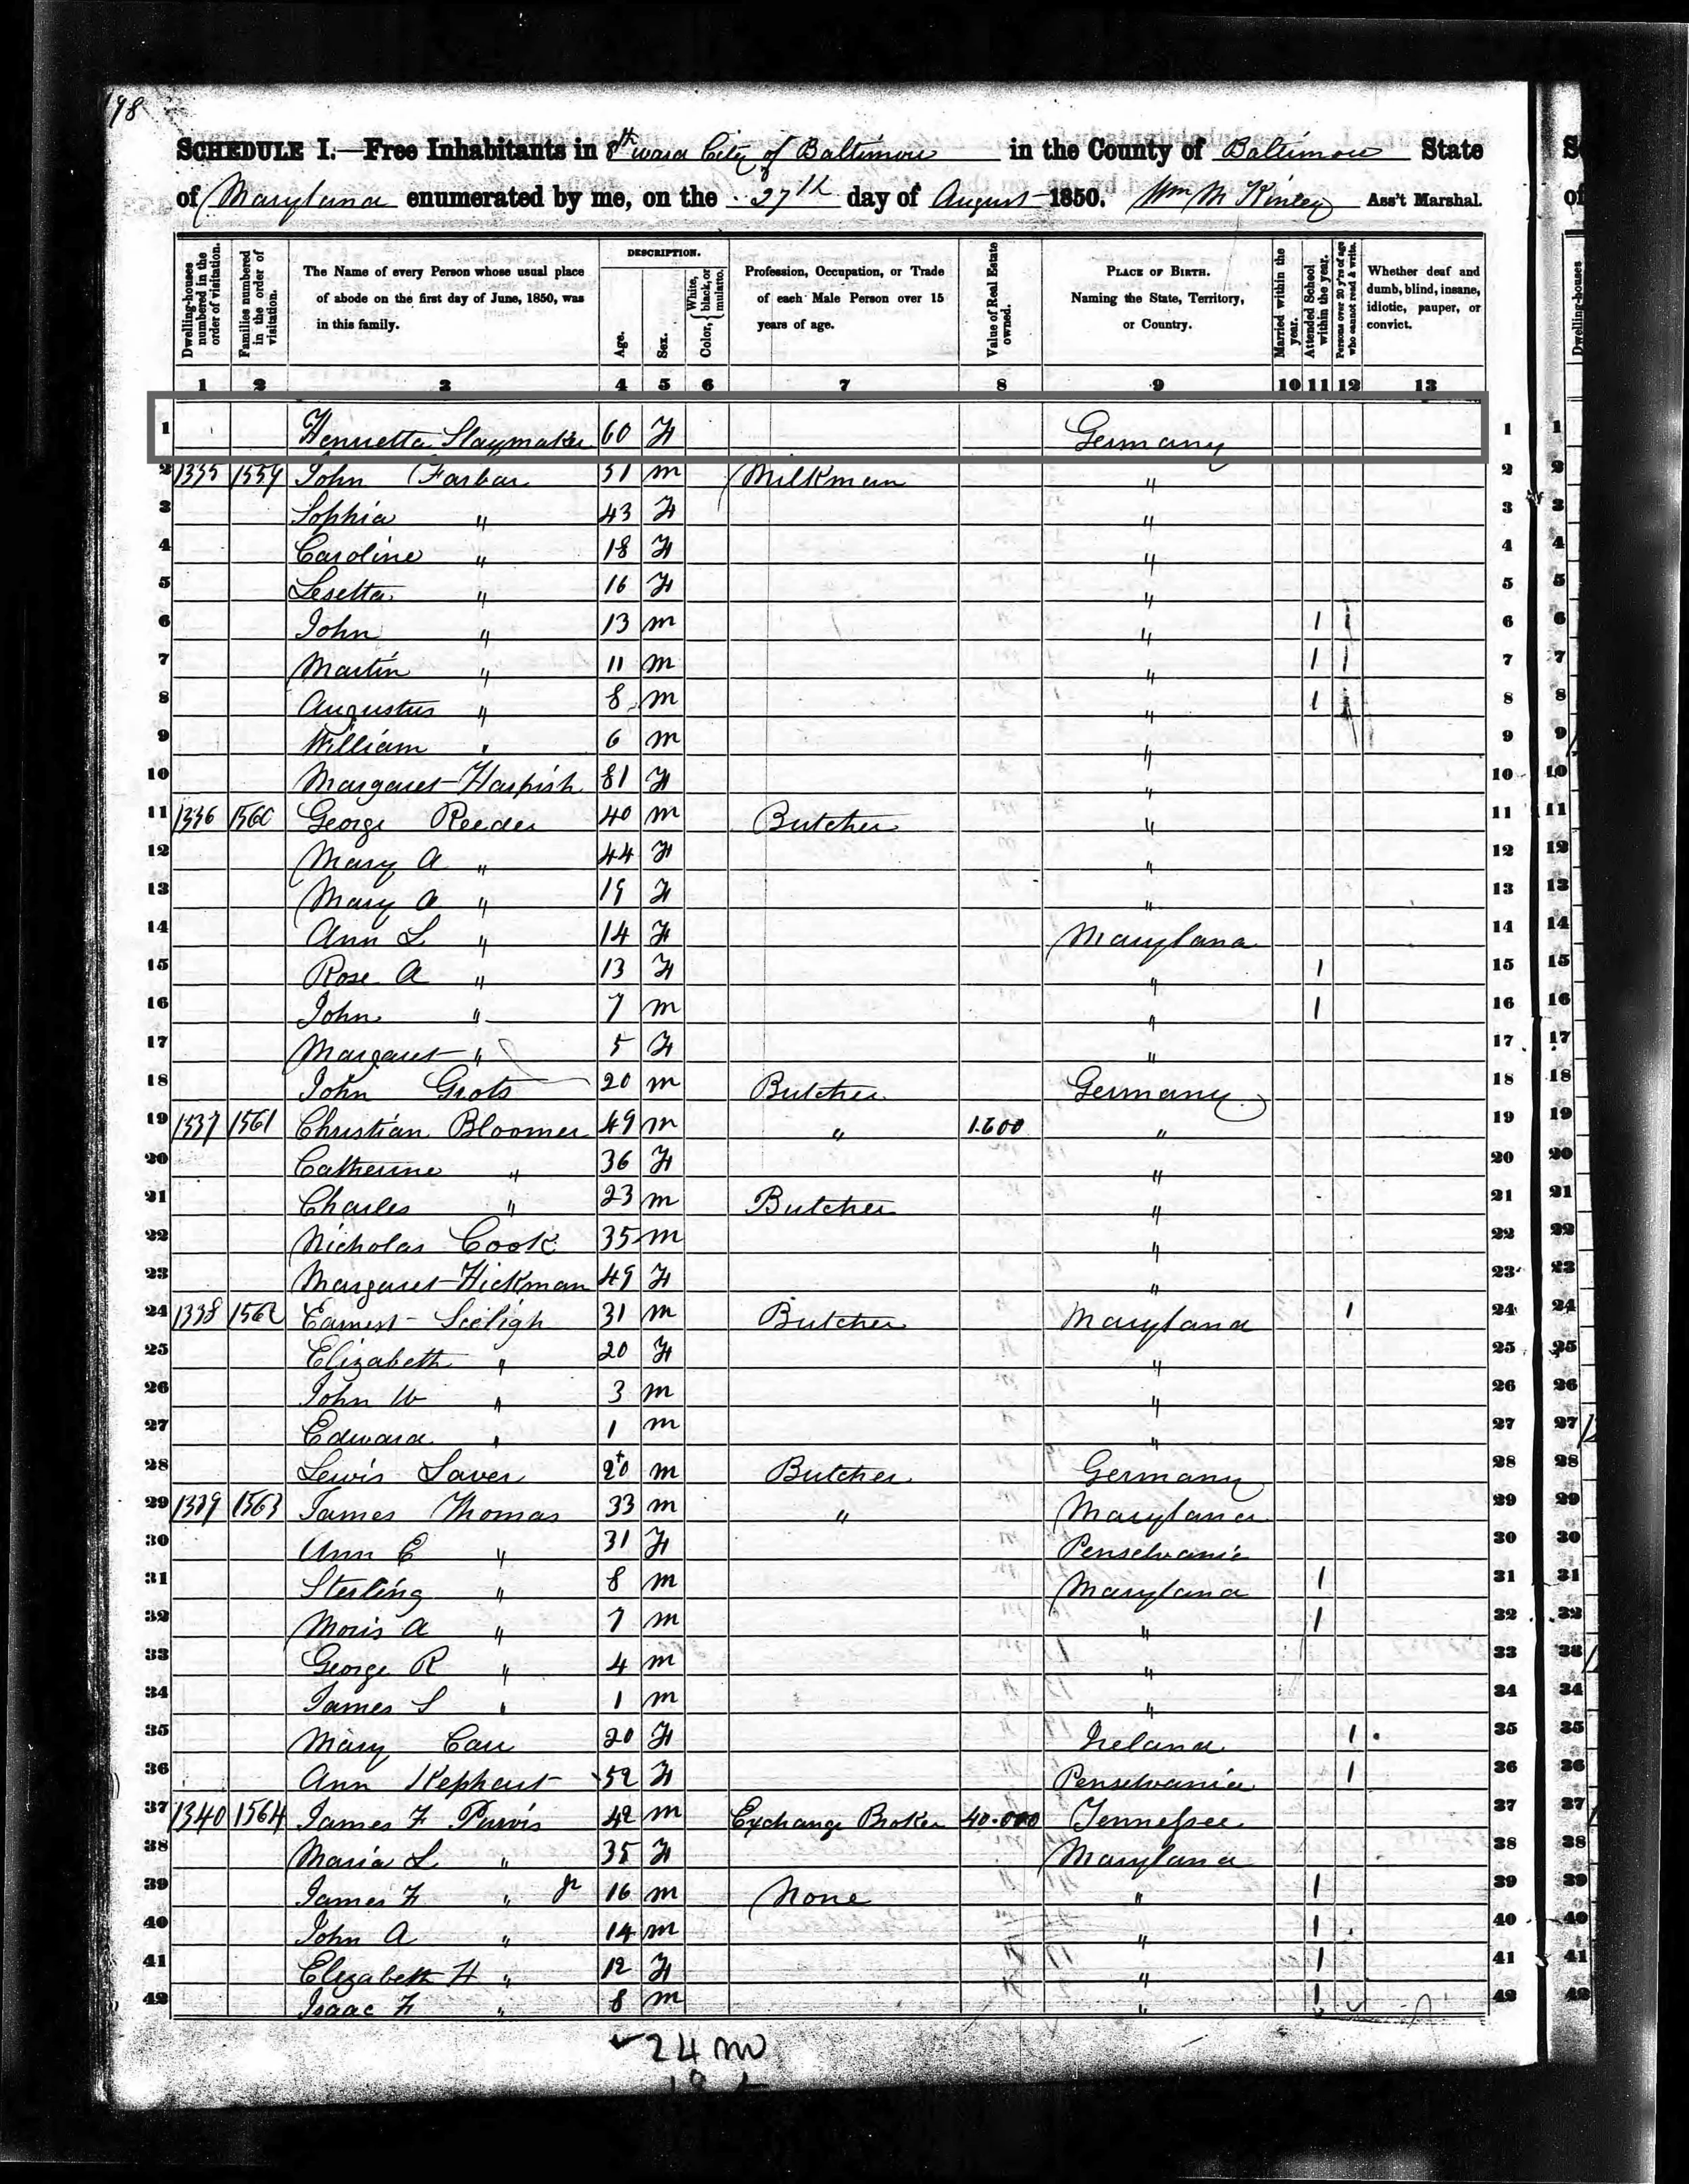 198
SCHEDULE I.—Free Inhabitants in 8th ward City of Baltimore in the County of Baltimore State
of Maryland enumerated by me, on the 27th day of August 1850. Wm M Kinley Ass't Marshal.
Dwelling-houses numbered in the order of visitation.
Families numbered in the order of visitation.
The Name of every Person whose usual place of abode on the first day of June, 1850, was in this family.
DESCRIPTION.
Age.
Sex.
Color, { White, black, or mulatto.
Profession, Occupation, or Trade of each Male Person over 15 years of age.
Value of Real Estate owned.
PLACE OF BIRTH. Naming the State, Territory, or Country.
Married within the year.
Attended School within the year.
Persons over 20 y'rs of age who cannot read & write.
Whether deaf and dumb, blind, insane, idiotic, pauper, or convict.
1 2 3 4 5 6 7 8 9 10 11 12 13
1 Henrietta Slaymaker 60 F Germany 1
2 1335 1559 John Farbar 51 m Milkman " 2
3 Sophia " 43 F " 3
4 Caroline " 18 F " 4
5 Lesetta " 16 F " 5
6 John " 13 m " 1 1 6
7 Martin " 11 m " 1 1 7
8 Augustus " 8 m " 1 1 8
9 William " 6 m " 9
10 Margaret Harpish 81 F " 10
11 1336 1560 George Reeder 40 m Butcher " 11
12 Mary A " 44 F " 12
13 Mary A " 19 F " 13
14 Ann L " 14 F Maryland 14
15 Rose A " 13 F " 1 15
16 John " 7 m " 1 16
17 Margaret " 5 F " 17
18 John Grots 20 m Butcher Germany 18
19 1337 1561 Christian Bloomer 49 m " 1.600 " 19
20 Catherine " 36 F " 20
21 Charles " 23 m Butcher " 21
22 Nicholas Cook 35 m " 22
23 Margaret Hickman 49 F " 23
24 1338 1562 Earnest Seeligh 31 m Butcher Maryland 1 24
25 Elizabeth " 20 F " 25
26 John W " 3 m " 26
27 Edward " 1 m " 27
28 Lewis Saver 20 m Butcher Germany 28
29 1339 1563 James Thomas 33 m " Maryland 29
30 Ann E " 31 F Penselvania 30
31 Sterling " 8 m Maryland 1 31
32 Moris A " 7 m " 1 32
33 George R " 4 m " 33
34 James S " 1 m " 34
35 Mary Carr 20 F Ireland 1 35
36 Ann Kephart 52 F Penselvania 1 36
37 1340 1564 James F Purvis 42 m Exchange Broker 40.000 Tennessee 37
38 Maria L " 35 F Maryland 38
39 James F " Jr 16 m None " 1 39
40 John A " 14 m " 1 40
41 Elizabeth H " 12 F " 1 41
42 Isaac F " 8 m " 1 42
24 m